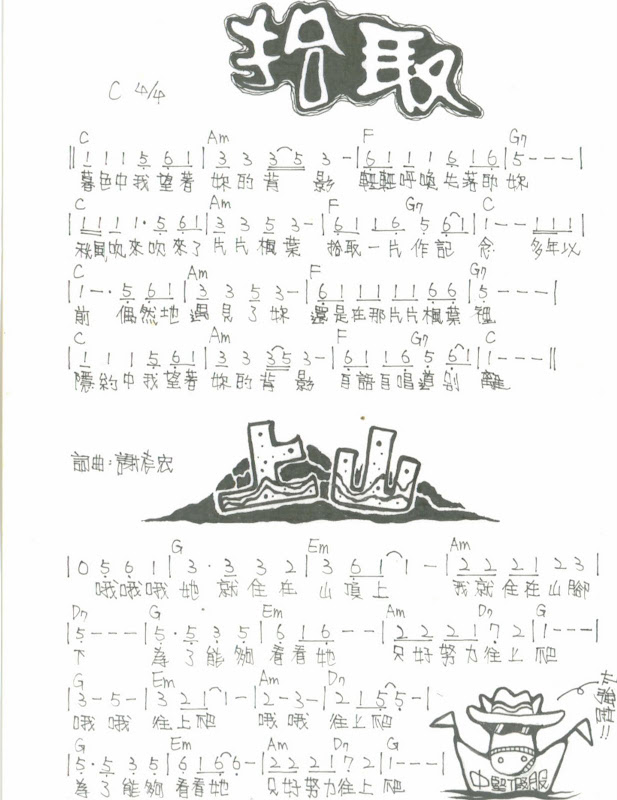 拾取
C 4/4
C Am F G7
‖ 1 1 1 5 6 1 | 3 3 3 5 3 - | 6 1 1 1 6 1 6 | 5 - - - |
暮色中我望著 妳的背 影 輕輕呼喚失落的妳
C Am F G7 C
| 1 1 1 1 · 5 6 1 | 3 3 5 3 - | 6 1 1 6 · 5 6 1 | 1 - - 1 1 1 |
秋風吹來吹來了 片片楓葉 拾取一片作記 念 多年以
C Am F G7
| 1 - · 5 6 1 | 3 3 5 3 - | 6 1 1 1 1 1 6 6 | 5 - - - |
前 偶然地 遇見了妳 還是在那片片楓葉裡
C Am F G7 C
| 1 1 1 5 6 1 | 3 3 3 5 3 - | 6 1 1 6 5 6 1 | 1 - - - ‖
隱約中我望著 妳的背 影 自語自唱道別 離
詞曲:
上山
G Em Am
| 0 5 6 1 | 3 · 3 3 2 | 3 6 1 1 - | 2 2 2 1 2 3 |
哦哦哦她 就住在 山頂上 我就住在山腳
D7 G Em Am D7 G
| 5 - - - | 5 · 5 3 5 | 6 1 6 - - | 2 2 2 1 7 2 | 1 - - - |
下 為了能夠 看看她 只好努力往上爬
G Em Am D7
| 3 - 5 - | 3 2 1 1 - | 2 - 3 - | 2 1 5 5 - |
哦 哦 往上爬 哦 哦 往上爬
G Em Am D7 G
| 5 · 5 3 5 | 6 1 6 6 - | 2 2 2 1 7 2 | 1 - - - |
為了能夠 看看她 只好努力往上爬
加強啦!!